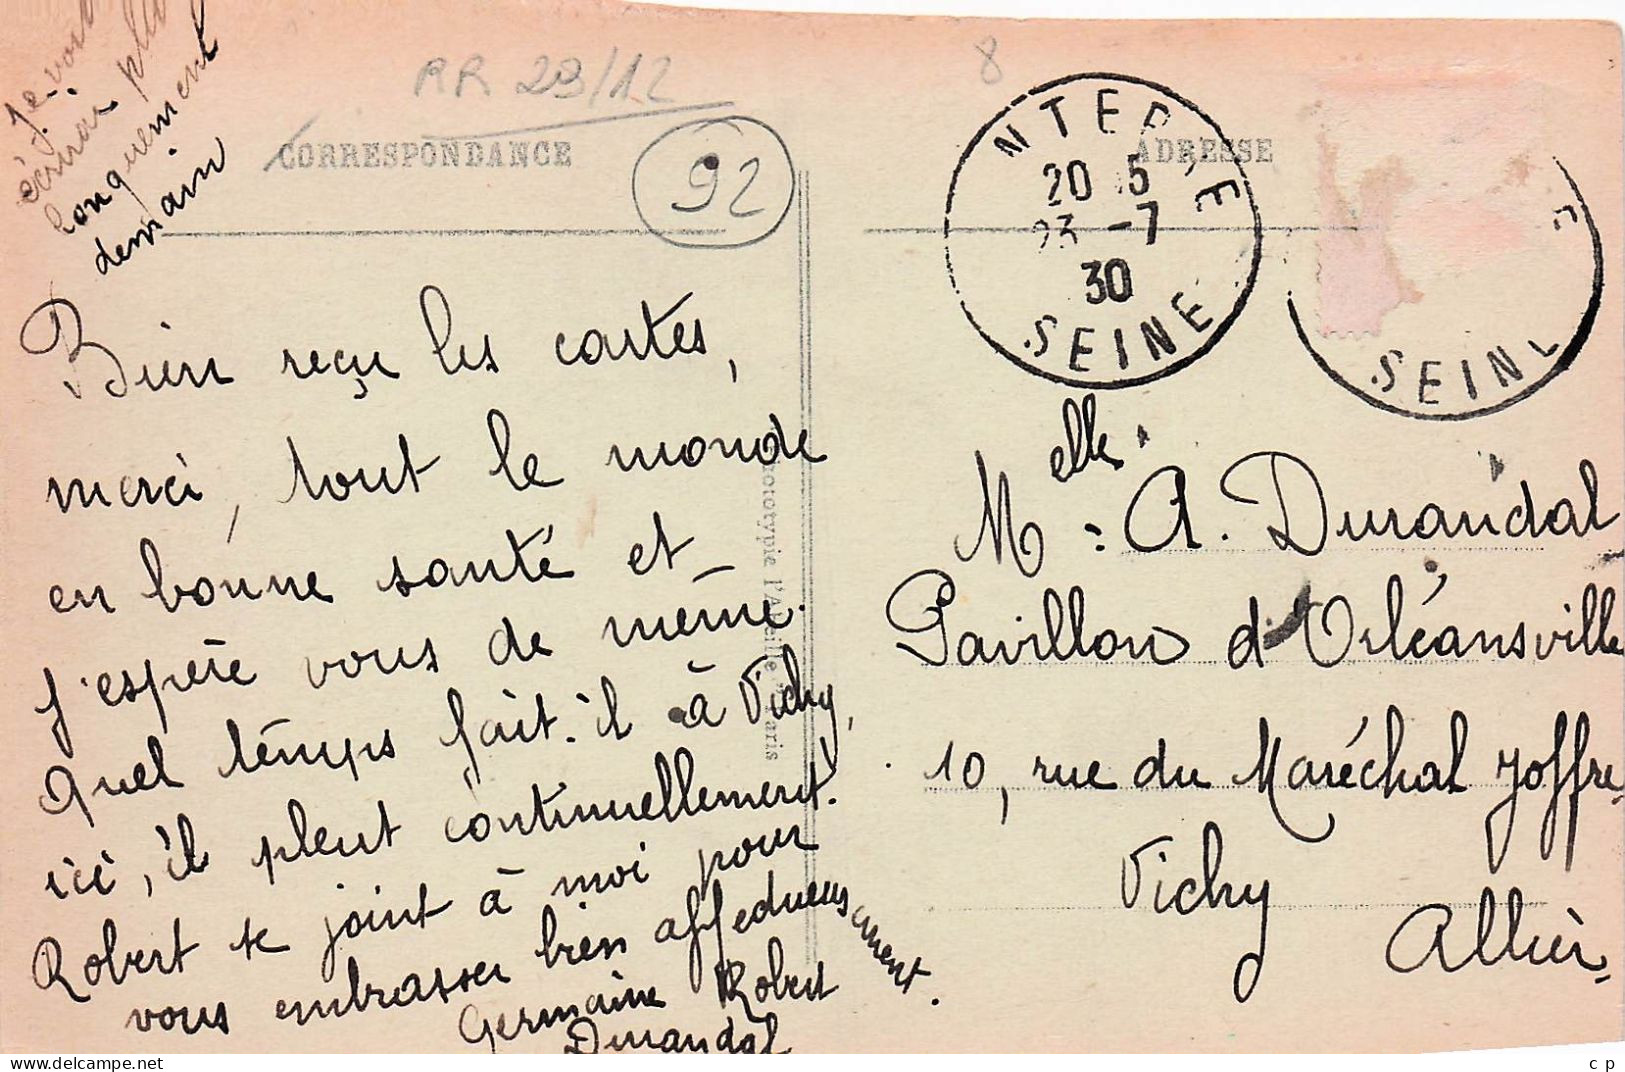 Je vous
écrirai plus
longuement
demain
RR 29/12
8
CORRESPONDANCE
92
ADRESSE
NTERRE
SEINE
20 15
23 -7
30
E
SEINE
Bien reçu les cartes,
merci, tout le monde
en bonne santé et
j'espère vous de même.
Quel temps fait-il à Vichy,
ici, il pleut continuellement.
Robert se joint à moi pour
vous embrasser bien affectueusement.
Germaine Robert
Durandal
Phototypie l'Abeille Paris
Melle : A. Durandal
Pavillon d'Orléansville
10, rue du Maréchal Joffre,
Vichy
Allier.
www.delcampe.net
c p